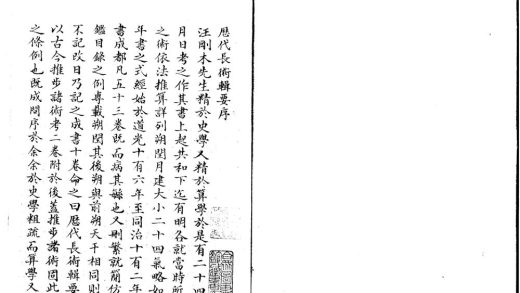 歷代長術輯要序
汪剛木先生精於史學又精於算學於是有二十四
月日考之作其書上起共和下迄有明各就當時所
之術依法推算詳列朔閏月建大小二十四氣略如
年書之式經始於道光十有六年至同治十有一年
書成都凡五十三卷既而病其繇也又刪繁就簡仿
鑑目錄之例專載朔閏其後朔與前朔天干相同則
不記改日乃記之成書十卷命之曰歷代長術輯要
以古今推步諸術考二卷附於後蓋推步諸術固此
之條例也既成問序於余余於史學粗疏而算學又